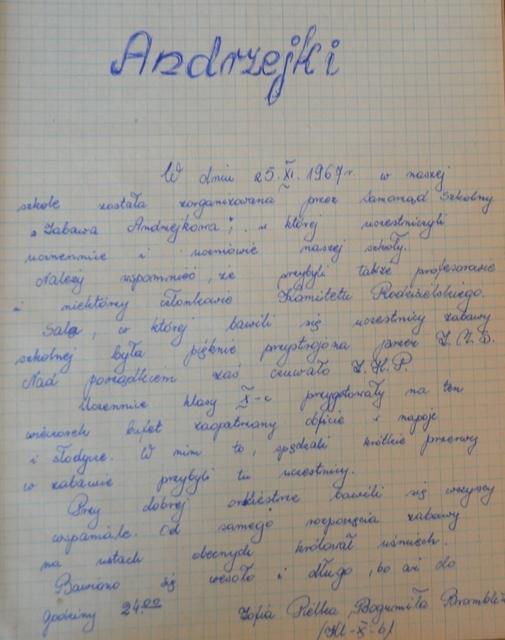 Andrzejki
W dniu 25.XI.1967r. w naszej
szkole została zorganizowana przez Samorząd Szkolny
"Zabawa Andrzejkowa", w której uczestniczyli
uczennice i uczniowie naszej szkoły.
Należy wspomnieć, że przybyli także profesorowie
i niektórzy członkowie Komitetu Rodzicielskiego.
Sala, w której bawili się uczestnicy zabawy
szkolnej była pięknie przystrojona przez
Nad porządkiem zaś czuwało Z.H.P.
Uczennice klasy X-c przygotowały na ten
wieczorek bufet zaopatrzony obficie w napoje
i słodycze. W nim to, spędzali krótkie przerwy
w zabawie przybyli tu uczestnicy.
Przy dobrej orkiestrze bawili się wszyscy
wspaniale. Od samego rozpoczęcia zabawy
na ustach obecnych królował uśmiech.
Bawiono się wesoło i długo, bo aż do
godziny 24.00 Zofia Bogumiła
/kl-X-b/